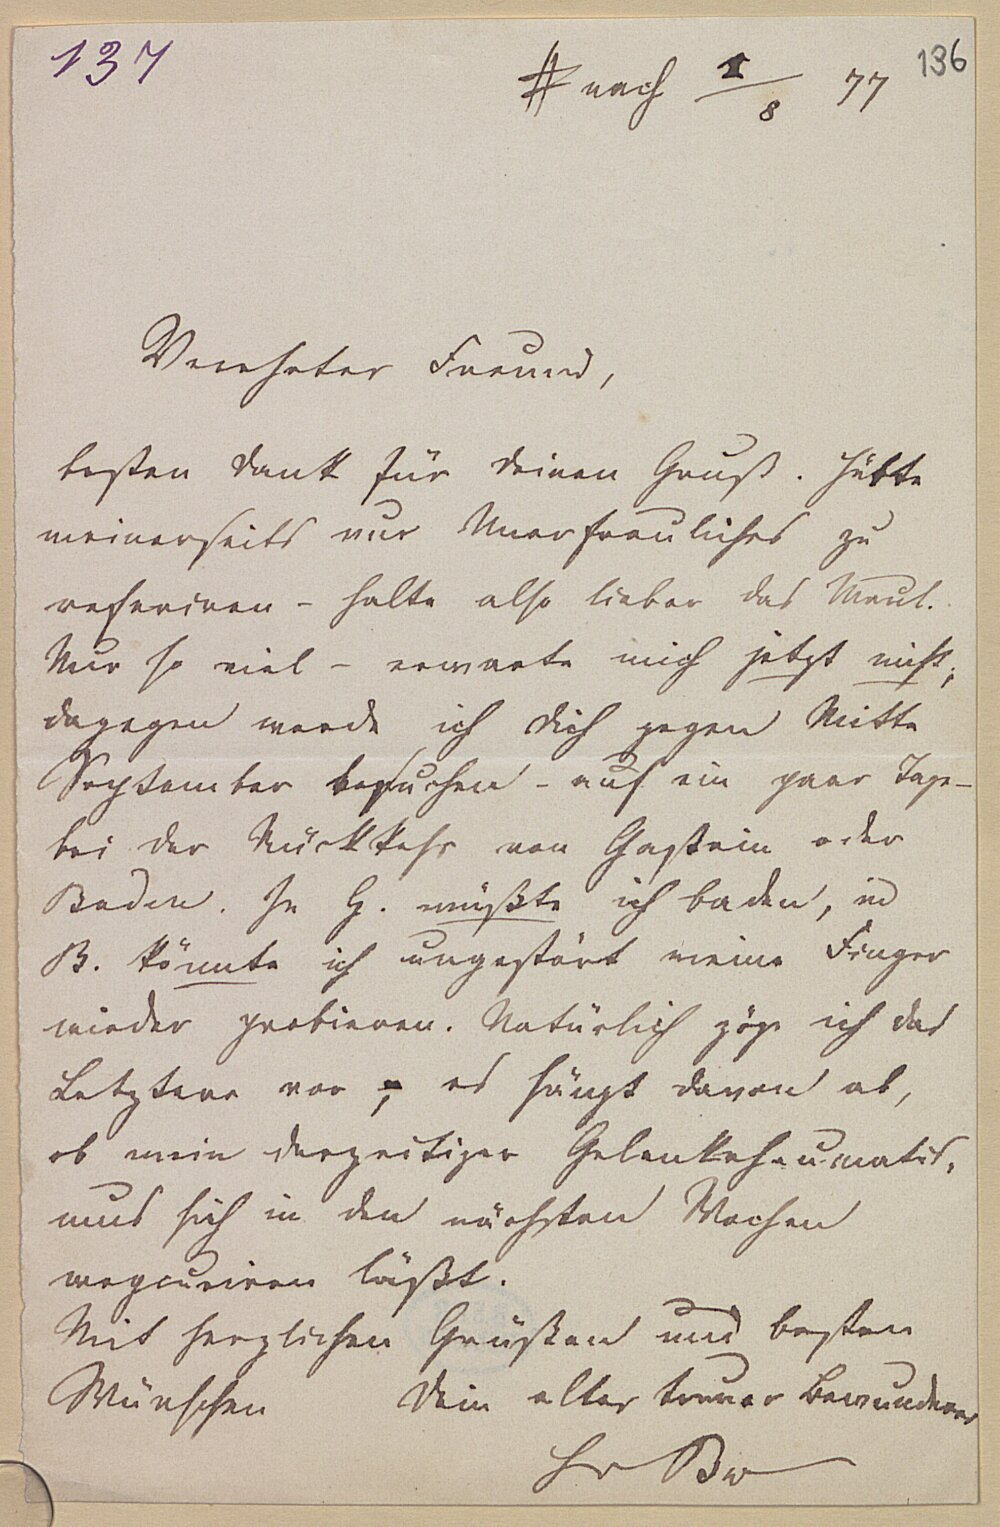 137
# nach 1/8 77
136
Verehrter Freund,
besten Dank für deinen Gruß. Hätte
meinerseits nur Unerfreuliches zu
referiren – halte also lieber das Maul.
Nur so viel – erwarte mich jetzt nicht;
dagegen werde ich Dich gegen Mitte
September besuchen – auf ein paar Tage –
bei der Rückkehr von Gastein oder
Baden. In G. müßte ich baden, in
B. könnte ich ungestört meine Finger
wieder probieren. Natürlich zöge ich das
Letztere vor; es hängt davon ab,
ob mein derzeitiger Gelenkrheumatis-
mus sich in den nächsten Wochen
wegcuriren läßt.
Mit herzlichen Grüßen und besten
Wünschen Dein alter treuer Bewunderer
HvBw